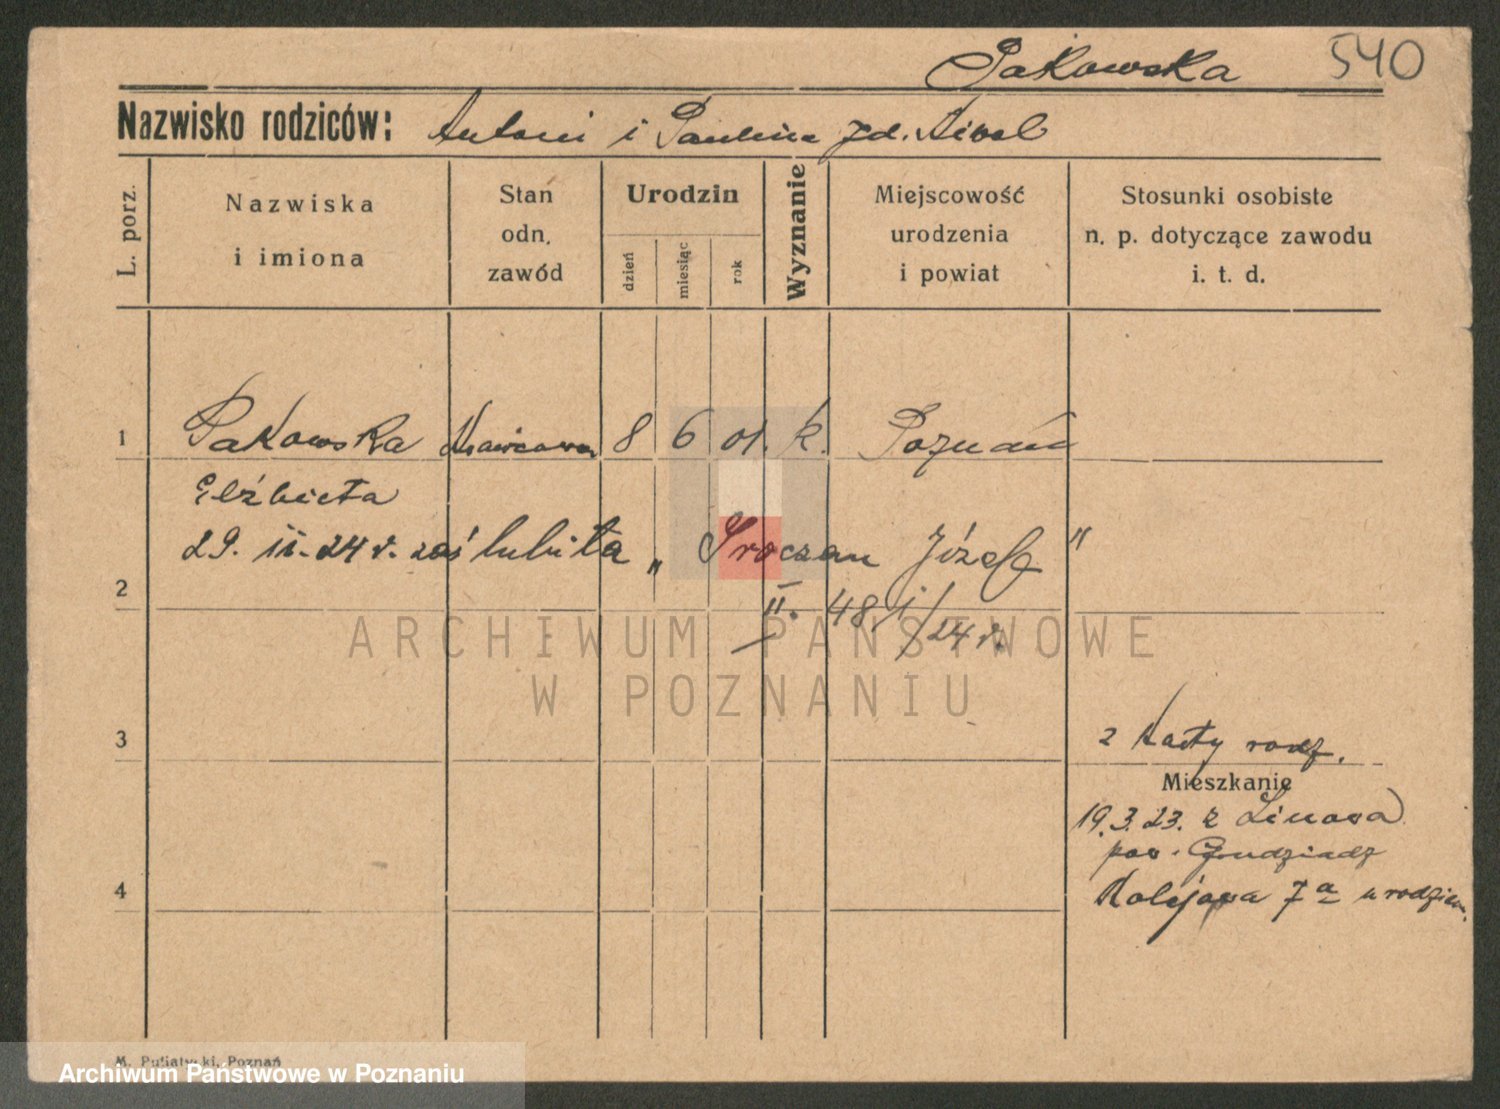 Pakowska 540
Nazwisko rodziców: Antoni i Paulina zd.
L. porz. Nazwiska i imiona Stan odn. zawód Urodzin dzień miesiąc rok Wyznanie Miejscowość urodzenia i powiat Stosunki osobiste n. p. dotyczące zawodu i. t. d.
1 Pakowska Krawcowa 8 6 01. k. Poznań
Elżbieta
29. II. 24 r. zaślubiła „ Sroczan Józef "
2 II. 481/24 r.
ARCHIWUM PAŃSTWOWE
W POZNANIU
3 2 karty rodz.
Mieszkanie
19.3.23. z Linowa
pow. Grudziądz
4 Kolejowa 7a u rodziców.
M. Putiatycki, Poznań
Archiwum Państwowe w Poznaniu